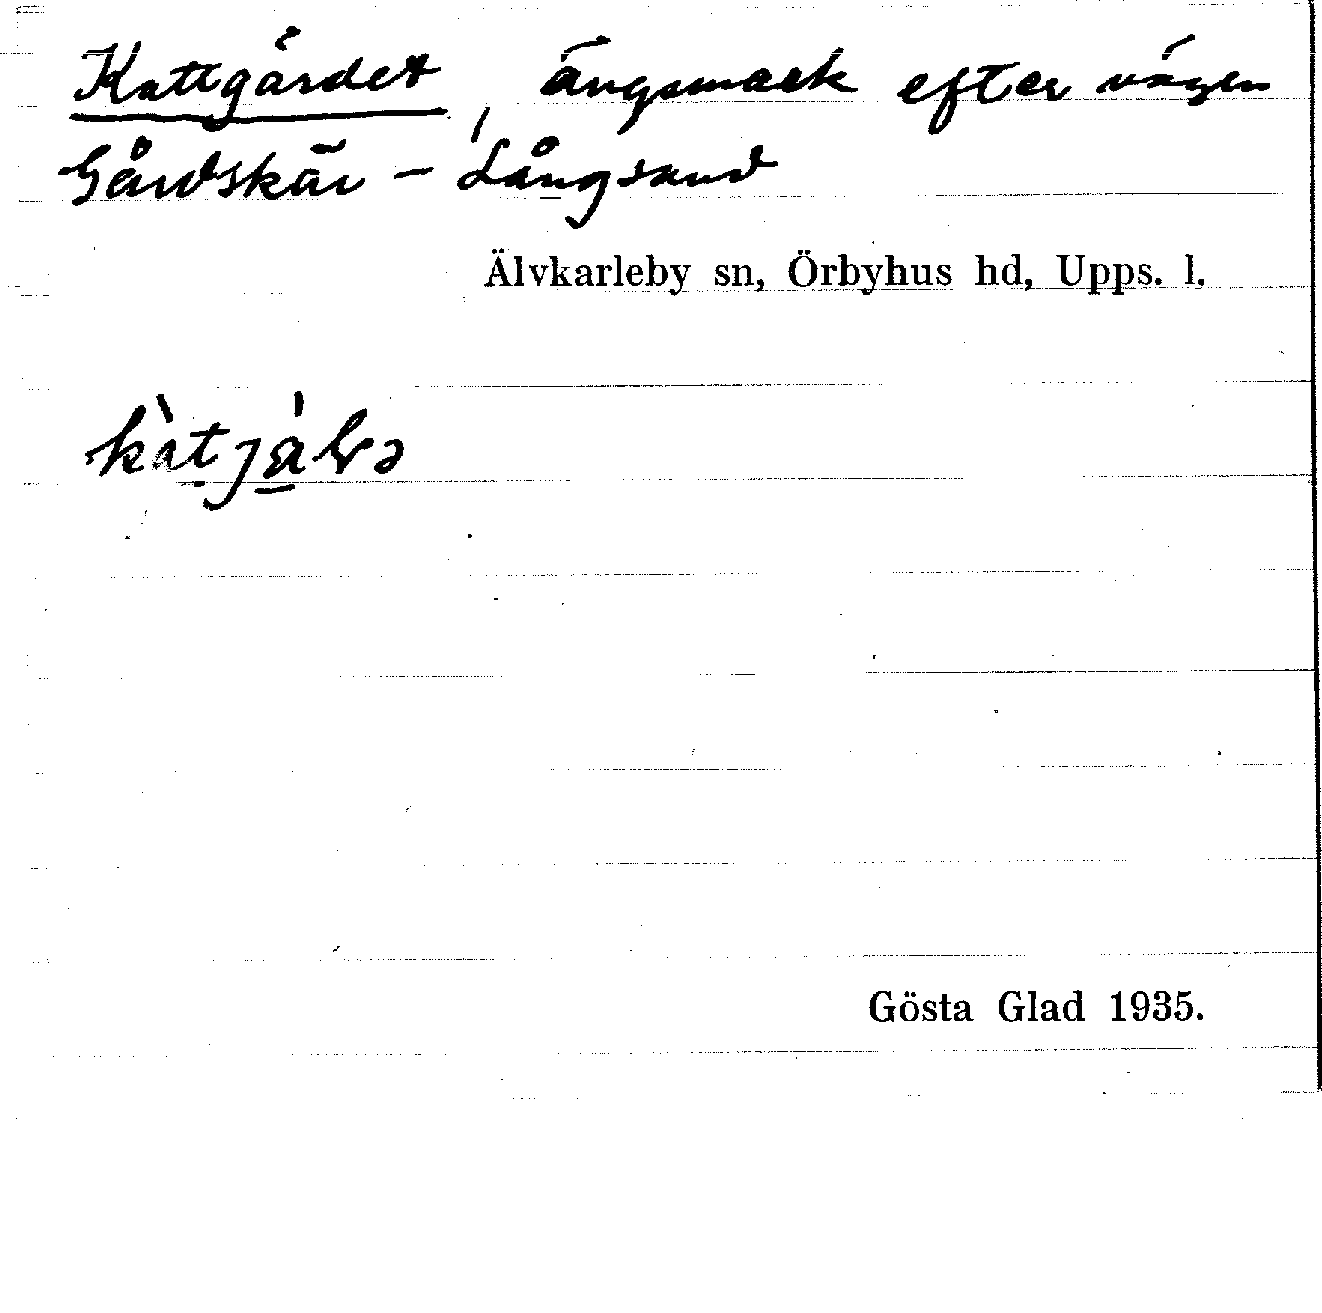 Kattgärdet, ängsmark efter vägen
Gårdskär - Långsand
Älvkarleby sn, Örbyhus hd, Upps. l.
Gösta Glad 1935.